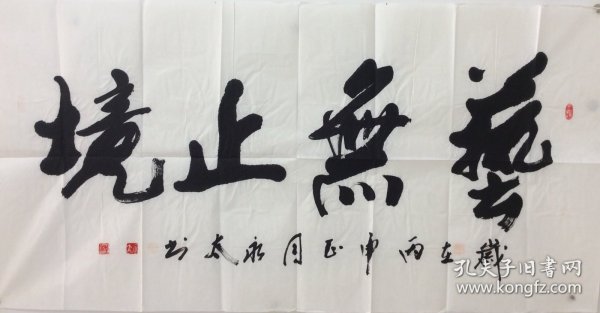 藝無止境
歲在丙申正月永太书
孔夫子旧书网
www.kongfz.com